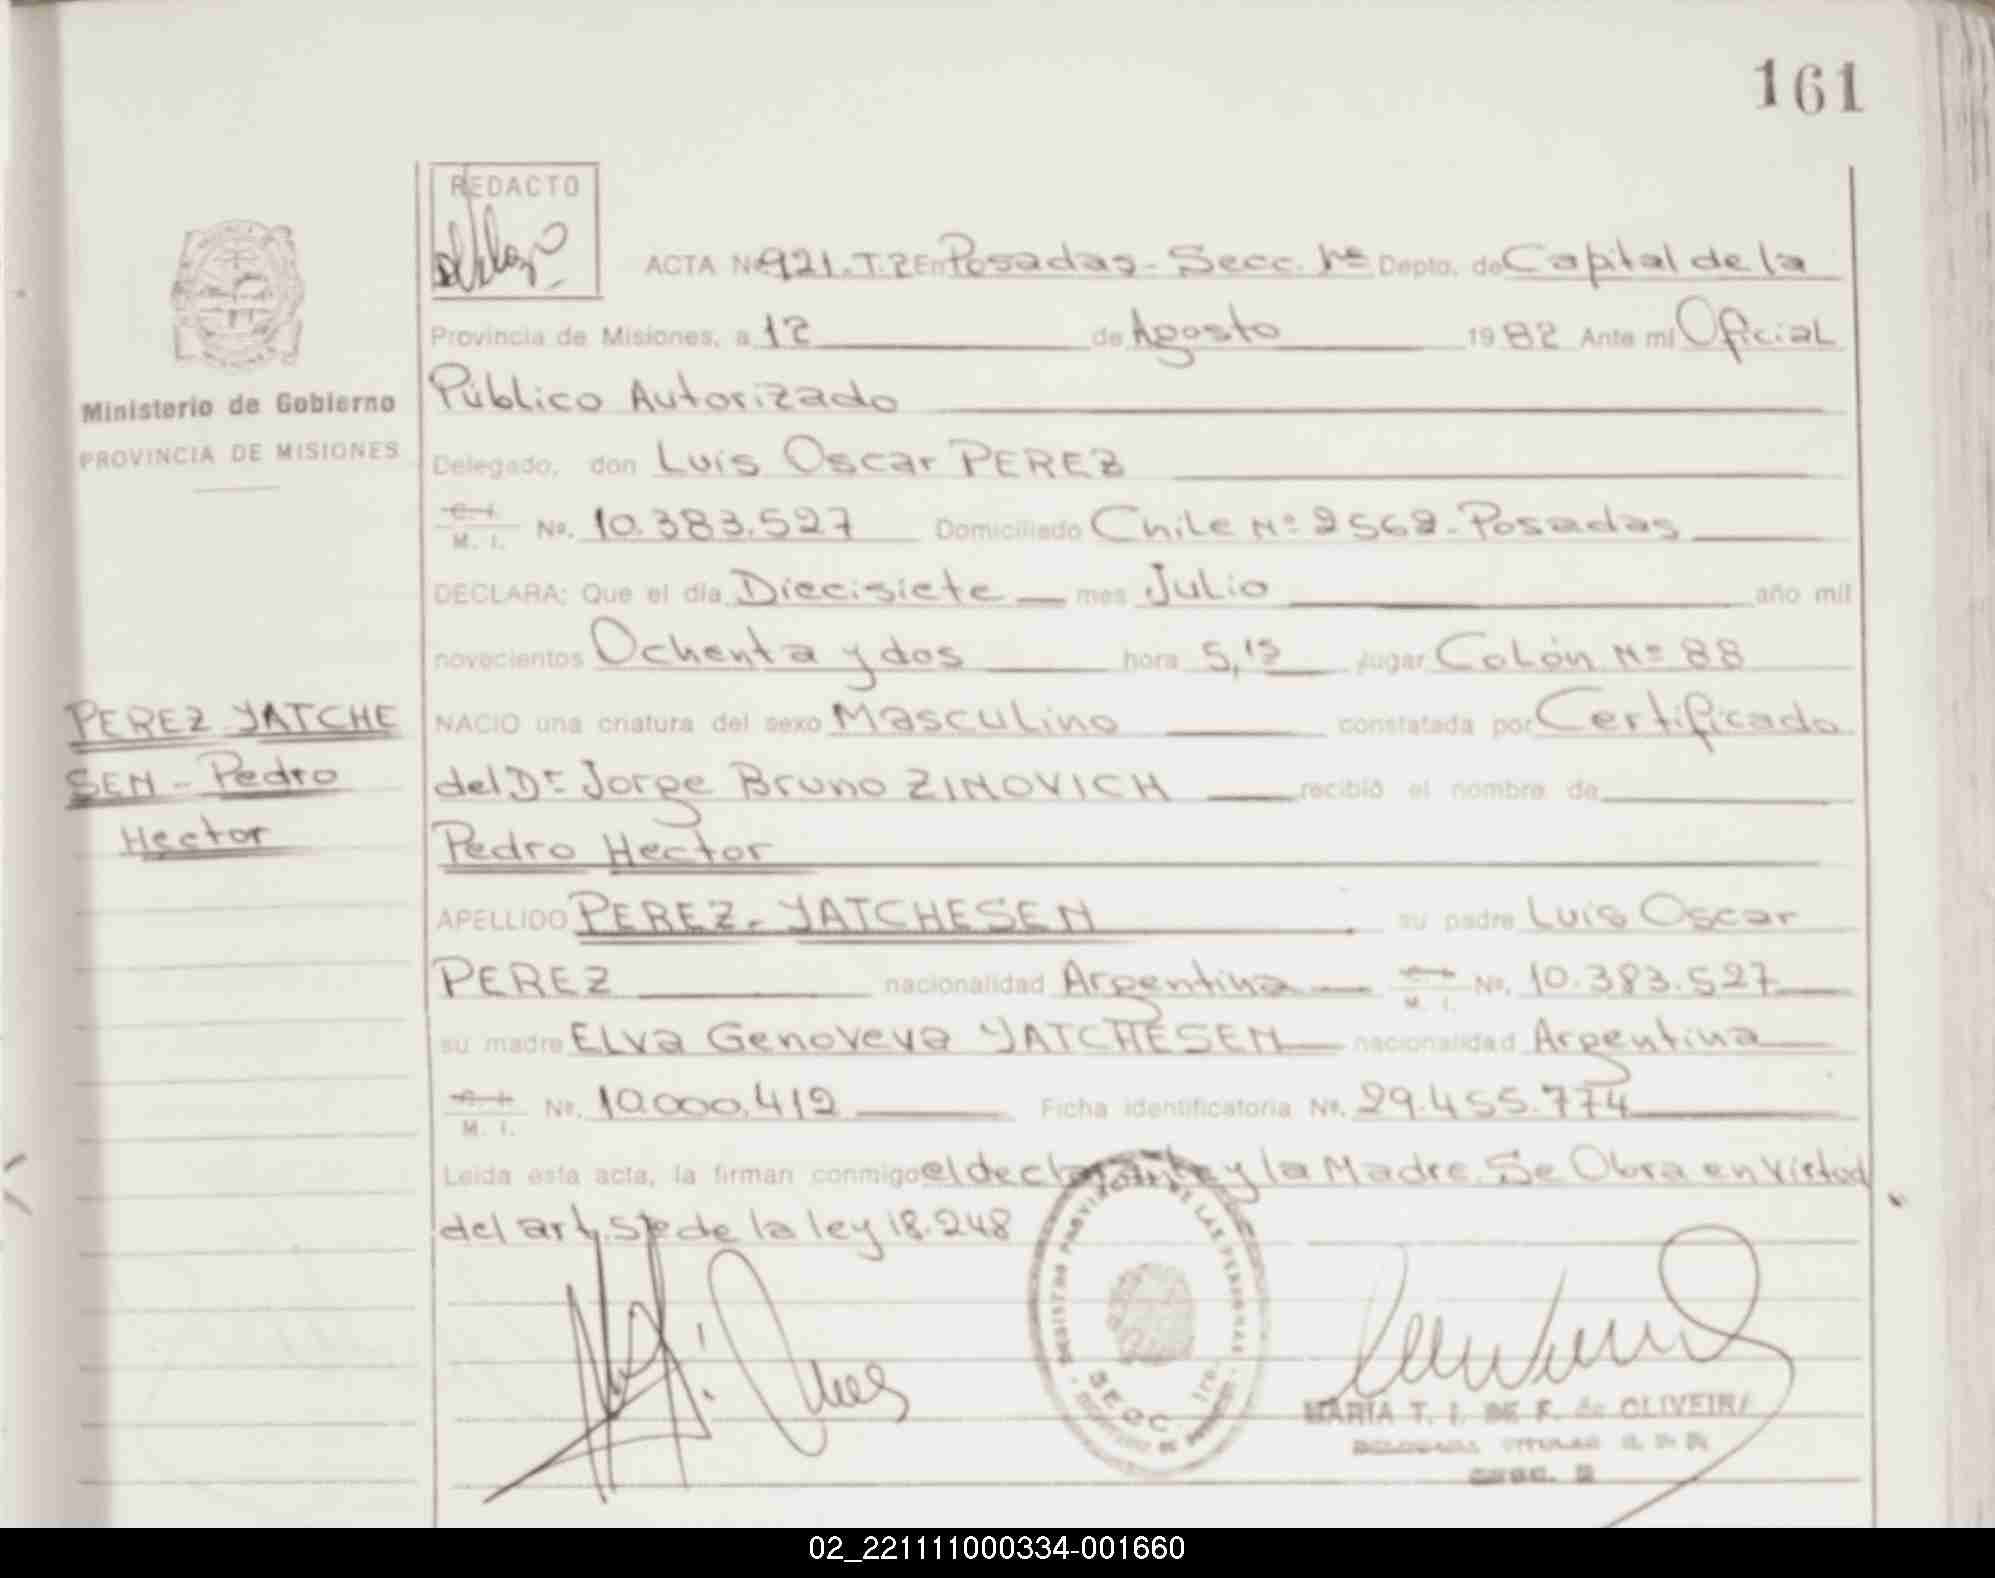 161
REDACTO
ACTA Nº 921.T.2 En Posadas - Secc. 1ª Depto. de Capital de la
Provincia de Misiones, a 12 de Agosto 1982 Ante mí Oficial
Público Autorizado
Ministerio de Gobierno
PROVINCIA DE MISIONES
Delegado, don Luis Oscar PEREZ
C. I.
M. I. Nº. 10.383.527 Domiciliado Chile Nº 2562 - Posadas
DECLARA: Que el día Diecisiete mes Julio año mil
novecientos Ochenta y dos hora 5,15 lugar Colón Nº 88
PEREZ YATCHE
SEN - Pedro
Hector
NACIO una criatura del sexo Masculino constatada por Certificado
del Dr. Jorge Bruno ZINOVICH recibió el nombre de
Pedro Hector
APELLIDO PEREZ - YATCHESEN su padre Luis Oscar
PEREZ nacionalidad Argentina C. I.
M. I. Nº. 10.383.527
su madre ELva Genoveva YATCHESEN nacionalidad Argentina
C. I.
M. I. Nº. 10.000.412 Ficha identificatoria Nº. 29.455.774
Leída esta acta, la firman conmigo el declarante y la Madre. Se Obra en Virtud
del art. 5º de la ley 18.248
REGISTRO PROVINCIAL DE LAS PERSONAS
MARIA T. I. DE F. de OLIVEIRA
02_221111000334-001660